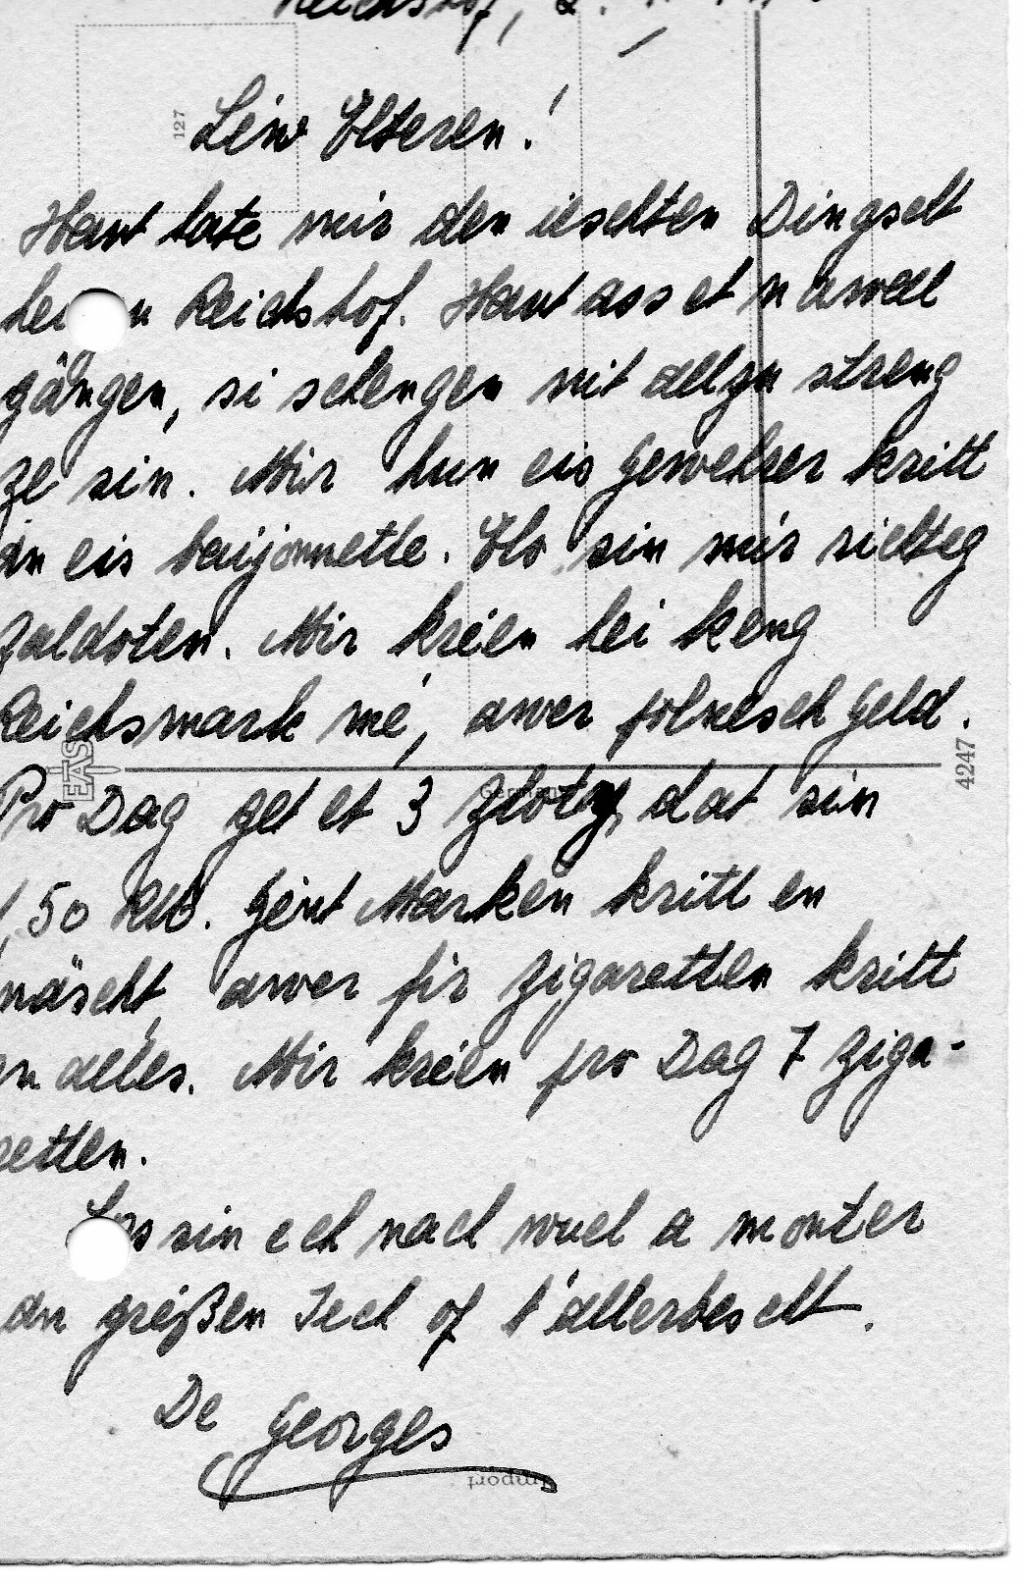 Reichshof, 2.
127
Léiw Elteren!
Haut hate mir den ieschten Dingscht
hei an Reichshof. Haut ass et nawell
gängen, si schengen nit allzu streng
ze sin. Mir hun eis Gewehrer kritt
an eis baijonnette. Elo sin mir richteg
Zaldoten. Mir kréien hei keng
Reichsmark mé, awer polnesch Geld.
EAS
4247
Germany
Pro Dag get et 3 Zloty, dat sin
1,50 RM. Géint Marken kritt en
näscht, awer fir Zigaretten kritt
en alles. Mir kréien pro Dag 7 Ziga-
retten.
Soss sin ech nach wuel a monter
an gréißen Iech of t'allerbescht.
De Georges
Import